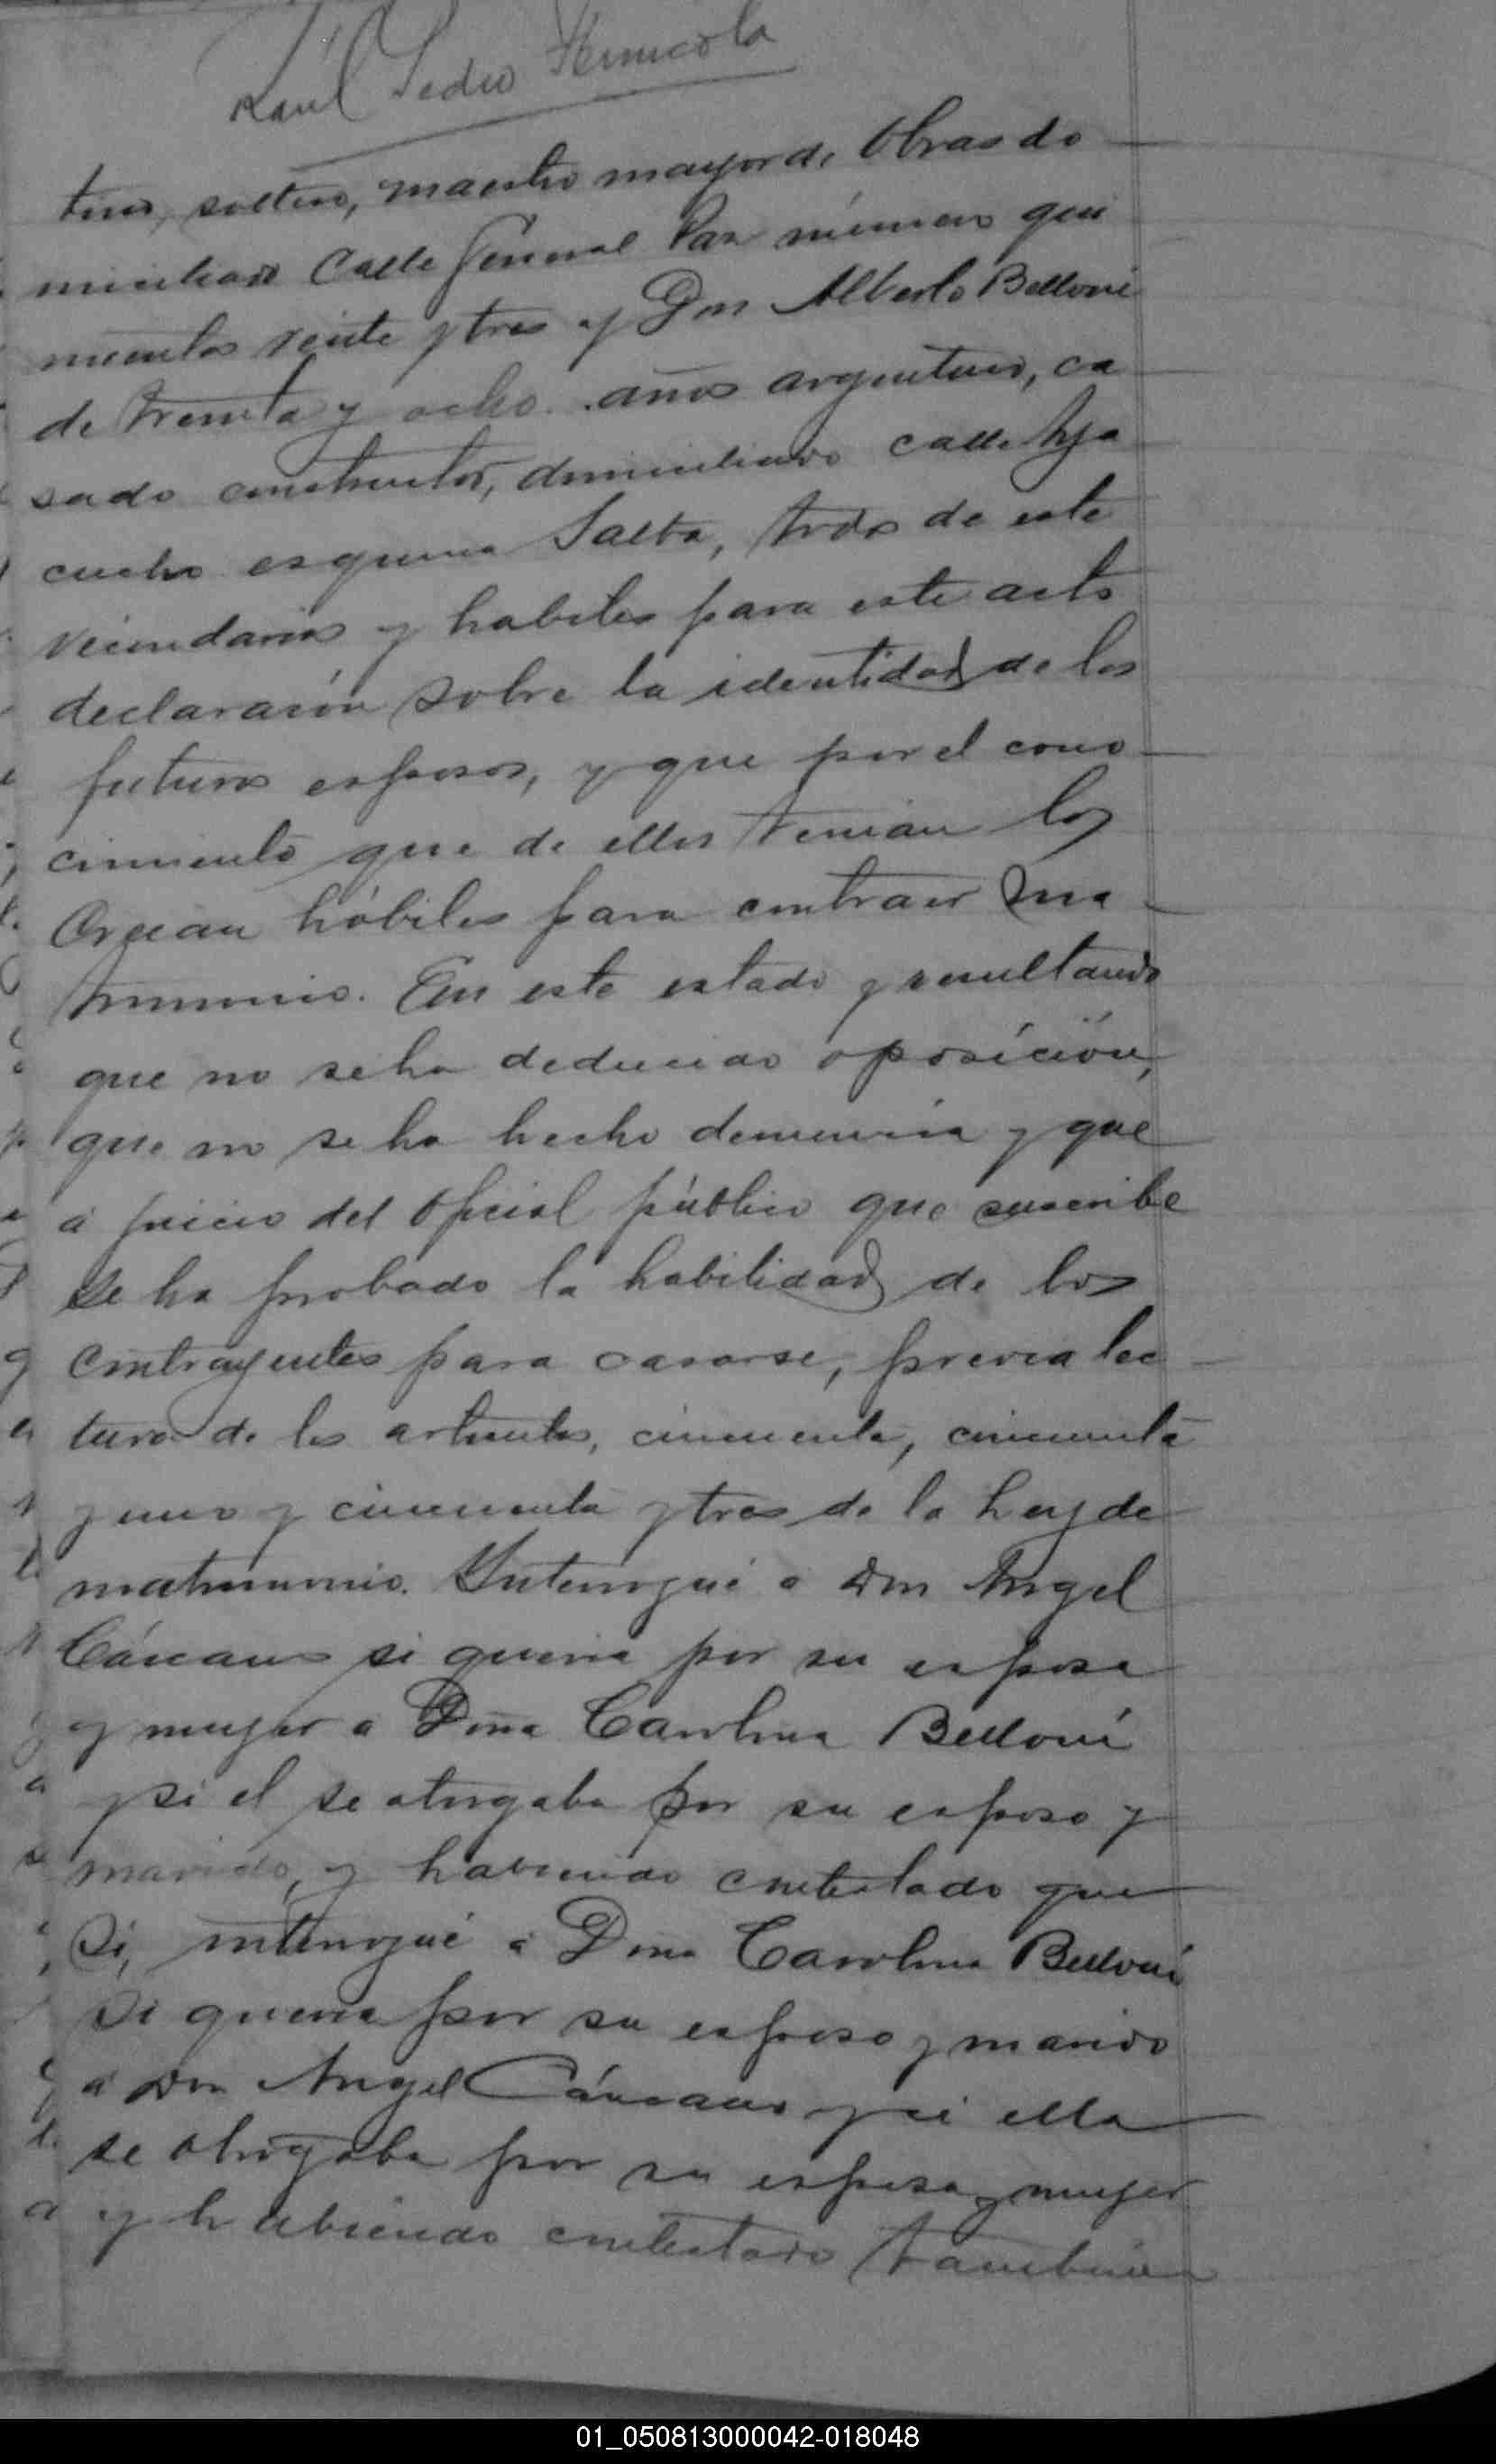 Raúl Pedro
tino, soltero, maestro mayor de Obras do
miciliado Calle General Paz número qui
nientos veinte y tres y Don Alberto Belloni
de treinta y ocho años argentino, ca
sado constructor, domiciliado calle Aya
cucho esquina Salta, todos de este
vecindario y habiles para este acto
declararón sobre la identidad de los
futuros esposos, y que por el cono
cimiento que de ellos tenian los
creian hábiles para contraer ma
trimonio. En este estado y resultando
que no se ha deducido oposición,
que no se ha hecho denuncia y que
á juicio del Oficial público que suscribe
se ha probado la habilidad de los
contrayentes para casarse, previa lec
tura de los articulos, cincuenta, cincuenta
y uno y cincuenta y tres de la Ley de
matrimonio. Interrogué a Don Angel
Cárcano si queria por su esposa
y mujer a Doña Carolina Belloni
y si el se otorgaba por su esposo y
marido, y habiendo contestado que
Si, interrogué á Doña Carolina Belloni
si queria por su esposo y marido
á Don Angel Cárcano y si ella
se otorgaba por su esposa y mujer
y habiendo contestado tambien
01_050813000042-018048